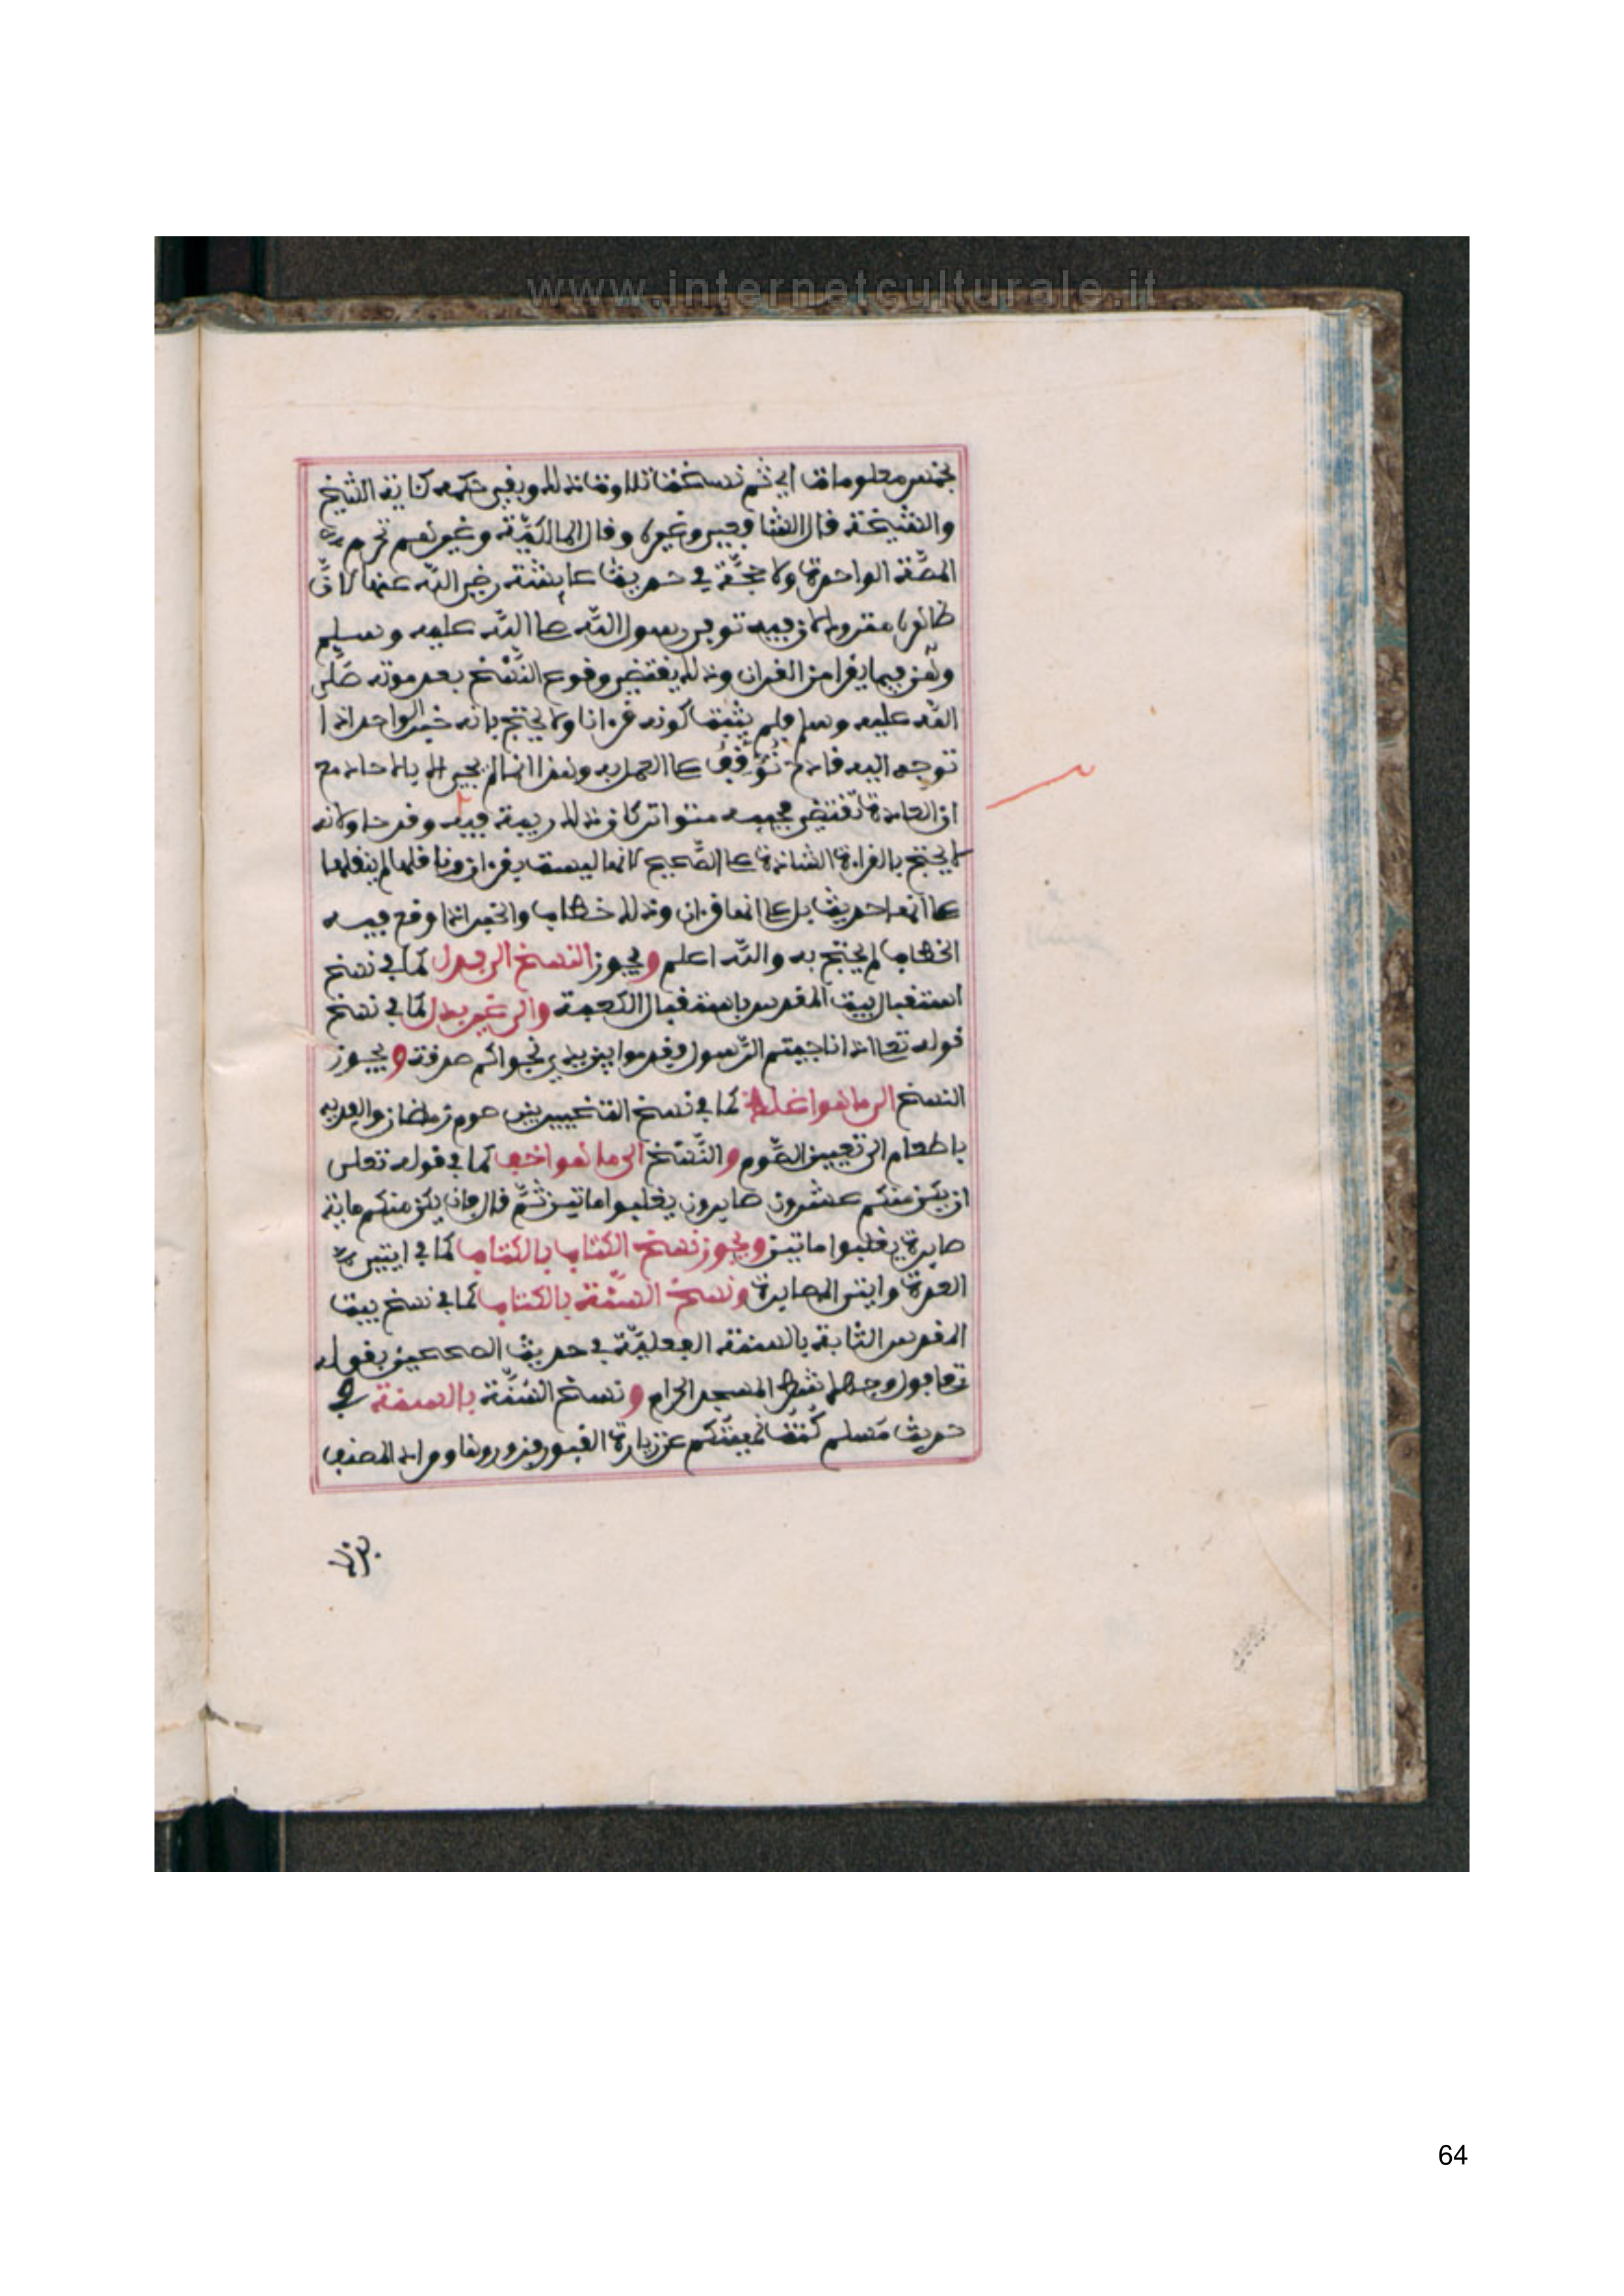 www.internetculturale.it
بخمس معلومات اي ثم نسخت تلاوة ذلك وبقي حكمه كناية الشيخ
والشيخة قال الشافعي وغيره وقال المالكية وغيرهم تحرم
المصّة الواحدة ولا حجّة في حديث عايشة رضي الله عنها لانّ
ظاهره متروك لان فيه توفي رسول الله صلى الله عليه وسلم
وهن فيما يقرا من القران وذلك يقتضي وقوع النّسخ بعد موته صلّى
الله عليه وسلم فلم يثبت كونه قرءانا ولا يحتج بانه خبر الواحد اذا
توجه اليه قادح تُوُقِّفَ عن العمل به وهذا انما لم يجي الا بالاحاد مع
ان العادة تقتضي مجييه متواترا كان ذلك ريبة فيه وقدحا ولانه
لا يحتج بالقراءة الشاذة على الصّحيح لانها ليست بقرءان وناقلها لم ينقلها
على انها حديث بل على انها قرءان وذلك خطا والخبر اذا وقع فيه
الخطا لم يحتج به والله اعلم ويجوز النسخ الى بدل كما في نسخ
استقبال بيت المقدس باستقبال الكعبة والى غير بدل كما في نسخ
قوله تعالى اذا ناجيتم الرّسول فقدموا بين يدي نجواكم صدقة ويجوز
النسخ الى ما هو اغلظ كما في نسخ التخيير بين صوم رمضان والفدية
باطعام الى تعيين الصّوم والنّسخ الى ما هو اخف كما في قوله تعلى
ان يكن منكم عشرون صابرون يغلبوا مايتين ثمّ قال فان يكن منكم ماية
صابرة يغلبوا مايتين ويجوز نسخ الكتاب بالكتاب كما في ايتي
العدة وايتي المصابرة ونسخ السّنّة بالكتاب كما في نسخ بيت
المقدس الثابتة بالسنة الفعليّة في حديث الصحيحين بقوله
تعالى فول وجهك شطر المسجد الحرام ونسخ السُّنَّة بالسنة في
حديث مسلم كُنتُ نهيتكم عن زيارة القبور فزوروها ومراد المصنف
64